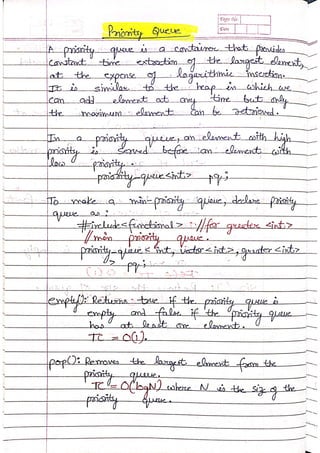 Priority Queue
A priority queue is a container that provides
constant time extraction of the largest element,
at the expense of logarithmic insertion.
It is similar to the heap in which we
can add element at any time but only
the maximum element can be retrieved.
In a priority queue, an element with high
priority is served before an element with
low priority.
priority_queue<int> pq;
To make a min-priority queue, declare priority
queue as:
#include<functional> //for greater <int>
//min priority queue.
priority_queue< int, vector<int>, greater<int>
> pq;
empty(): Returns true if the priority queue is
empty and false if the priority queue
has at least one element.
TC = O(1).
pop(): Removes the largest element from the
priority queue.
TC = O(logN) where N is the size of the
priority queue.